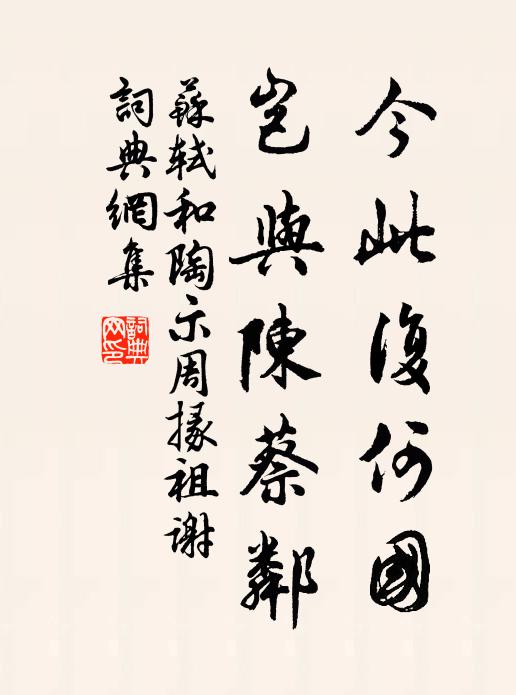 今此復何國
豈與陳蔡鄰
蘇軾和陶示周掾祖謝
詞典網集
詞典
网印